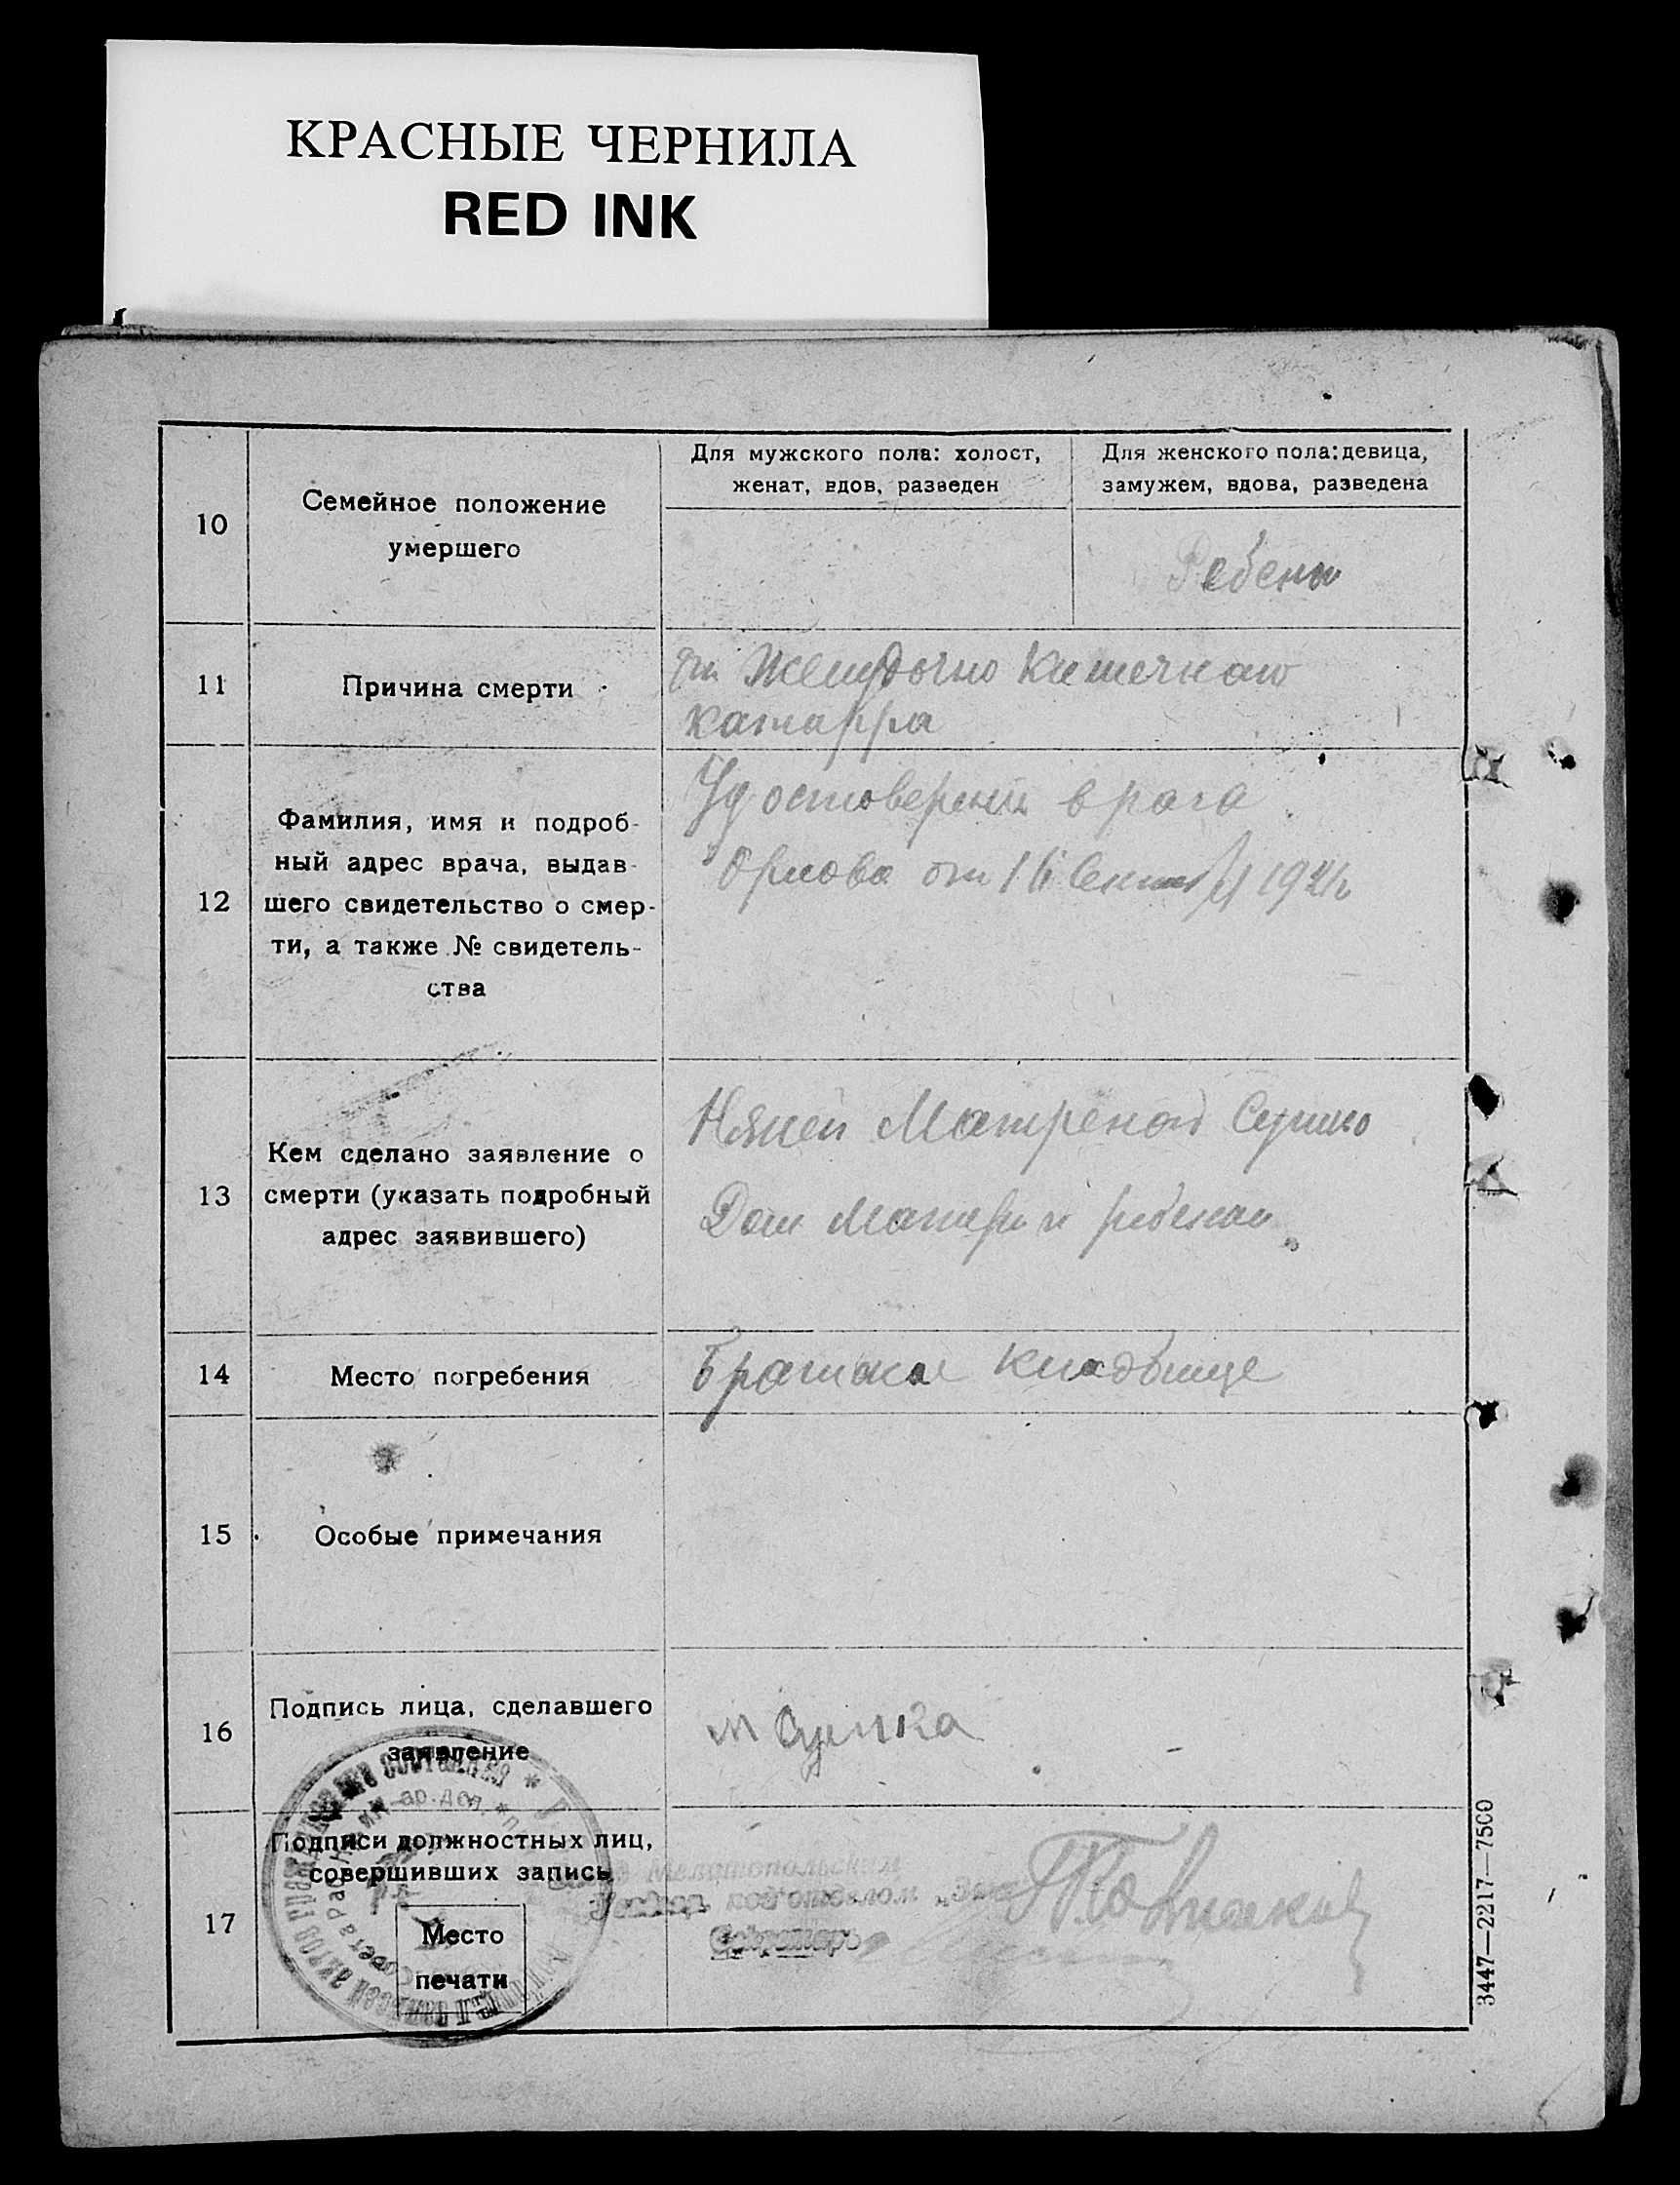 КРАСНЫЕ ЧЕРНИЛА
RED INK
10
Семейное положение
умершего
Для мужского пола: холост,
женат, вдов, разведен
Для женского пола: девица,
замужем, вдова, разведена
Ребенок
11
Причина смерти
от Желудочно Кишечнаго
катарра
12
Фамилия, имя и подроб-
ный адрес врача, выдав-
шего свидетельство о смер-
ти, а также № свидетель-
ства
Удостоверения врага
Орлова от 16
13
Кем сделано заявление о
смерти (указать подробный
адрес заявившего)
Няней Матреной
Дом Матери и ребенка
14
Место погребения
Братское Кладбище
15
Особые примечания
16
Подпись лица, сделавшего
заявление
17
Подписи должностных лиц,
совершивших запись
Место
печати
3447—2217—7500